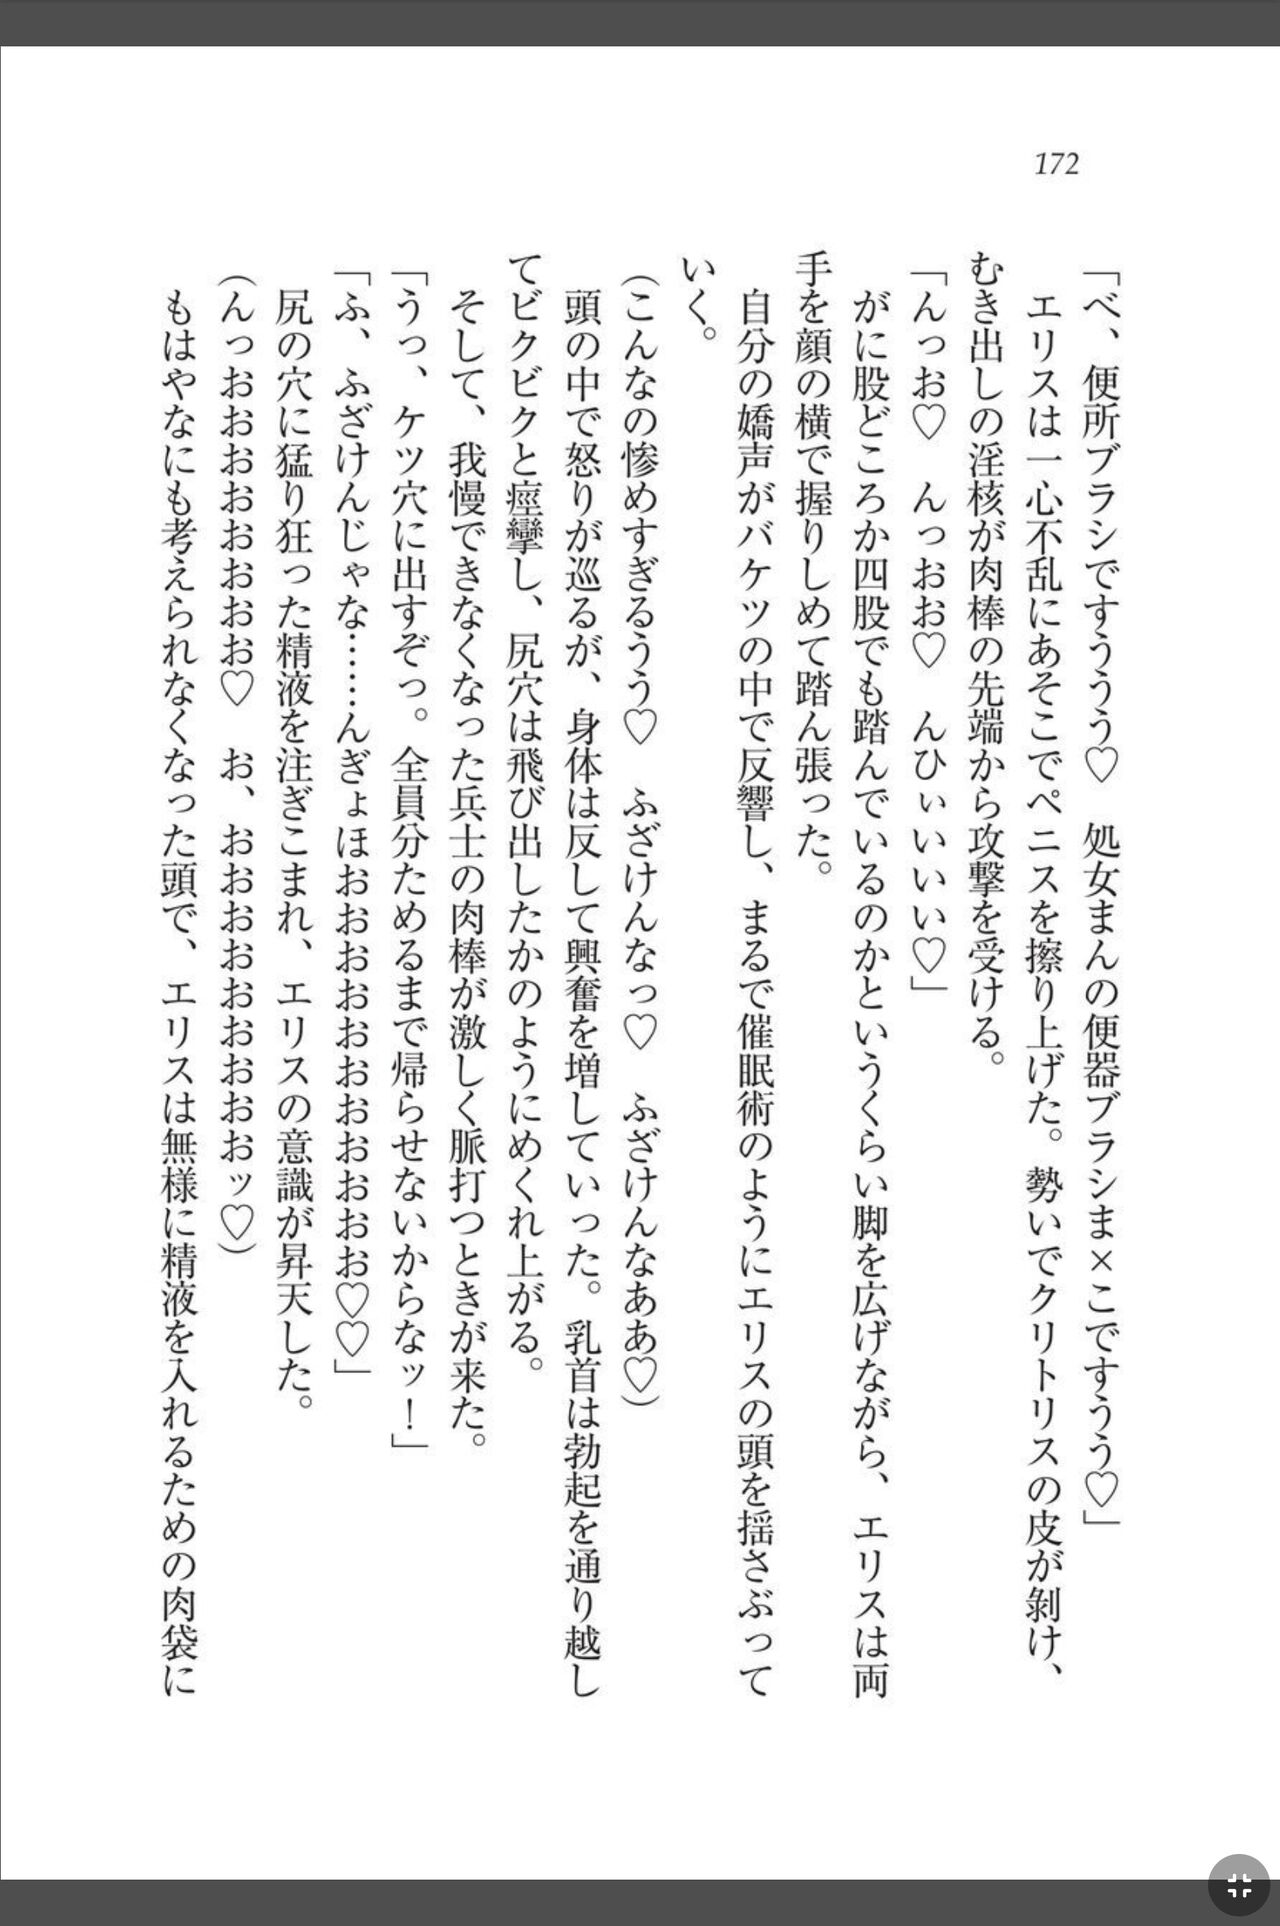 172
「べ、便所ブラシですううう♡　処女まんの便器ブラシま×こですうう♡」
　エリスは一心不乱にあそこでペニスを擦り上げた。勢いでクリトリスの皮が剝け、
むき出しの淫核が肉棒の先端から攻撃を受ける。
「んっお♡　んっおお♡　んひぃいいい♡」
　がに股どころか四股でも踏んでいるのかというくらい脚を広げながら、エリスは両
手を顔の横で握りしめて踏ん張った。
　自分の嬌声がバケツの中で反響し、まるで催眠術のようにエリスの頭を揺さぶって
いく。
（こんなの惨めすぎるうう♡　ふざけんなっ♡　ふざけんなああ♡）
　頭の中で怒りが巡るが、身体は反して興奮を増していった。乳首は勃起を通り越し
てビクビクと痙攣し、尻穴は飛び出したかのようにめくれ上がる。
　そして、我慢できなくなった兵士の肉棒が激しく脈打つときが来た。
「うっ、ケツ穴に出すぞっ。全員分ためるまで帰らせないからなッ！」
「ふ、ふざけんじゃな……んぎょほおおおおおおおおおおお♡♡」
　尻の穴に猛り狂った精液を注ぎこまれ、エリスの意識が昇天した。
（んっおおおおおおおおお♡　お、おおおおおおおおおッ♡）
　もはやなにも考えられなくなった頭で、エリスは無様に精液を入れるための肉袋に